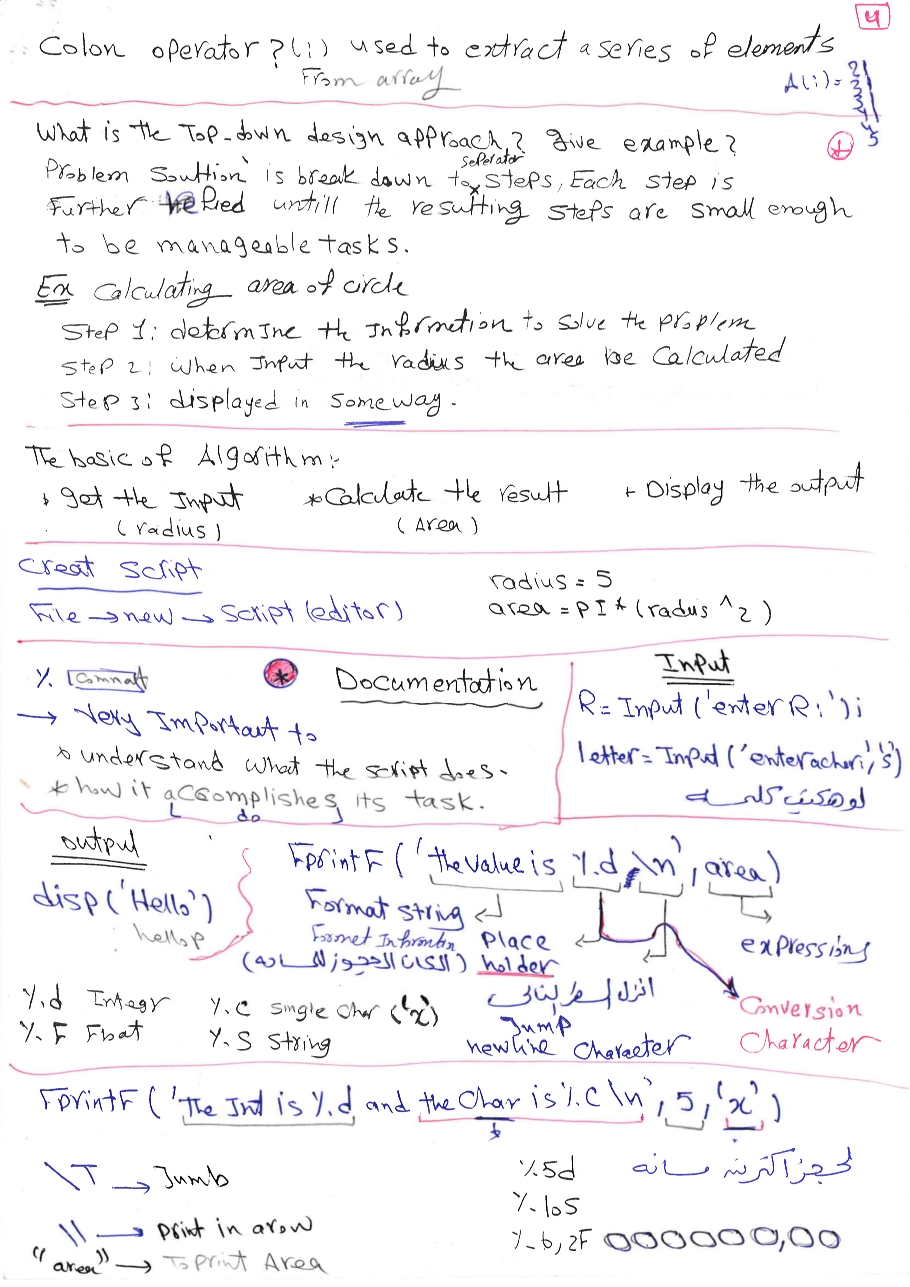 4
Colon operator ? (:) used to extract a series of elements
From array
A(i) = 2
2
3
4
5
What is the Top-down design approach? give example?
Problem Souttion is break down to seperator steps, Each step is
Further Refied untill the resultting steps are small enough
to be manageable tasks.
Ex Calculating area of circle
Step 1: determine the Information to solve the problem
Step 2: when Input the radius the area be Calculated
Step 3: displayed in someway.
The basic of Algorithm:-
* get the Input * Calculate the result + Display the output
(radius) (Area)
Creat Script
File → new → Script (editor)
radius = 5
area = PI * (radus ^ 2)
% Commat * Documentation
→ Very Important to
* understand what the script does.
* how it accomplishes its task.
do
Input
R = Input ('enter R:');
letter = Input ('enter a char:', 's')
output
disp ('Hello')
hello
FprintF ('the value is %.d, \n', area)
Format string
Place
holder
expressions
Jump
newline Character
Conversion
Character
%.d Integr %.C Single Char ('x')
%.F Float %.S String
FprintF ('The Int is %.d and the Char is %.C \n', 5, 'x')
\T → Jumb
\\ → print in arow
"area" → To print Area
%.5d
%.10S
%-6,2F 000000,00